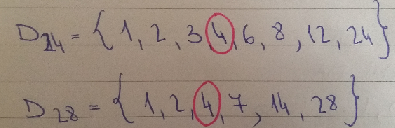 D₂₄ = { 1, 2, 3 4, 6, 8, 12, 24 }
D₂₈ = { 1, 2, 4, 7, 14, 28 }